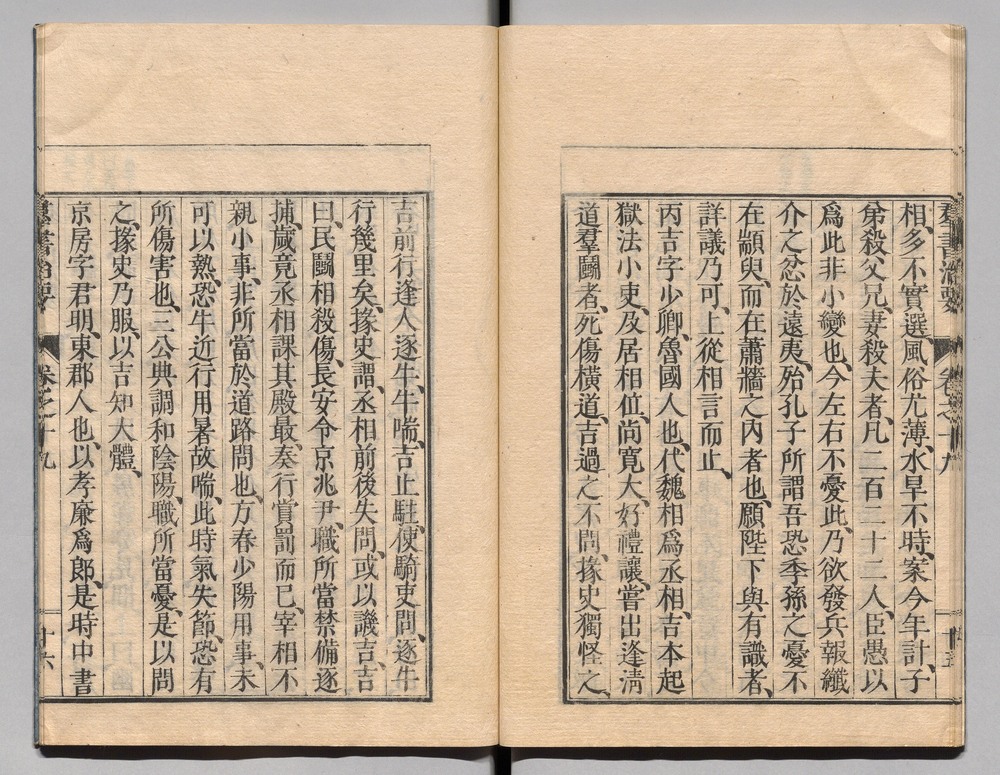 羣書治要 卷之十九
相、多不實選、風俗尤薄、水旱不時、案今年計、子
弟殺父兄、妻殺夫者、凡二百二十二人、臣愚以
爲此非小變也、今左右不憂此、乃欲發兵報纖
介之忿於遠夷、殆孔子所謂吾恐季孫之憂不
在顓臾、而在蕭牆之內者也、願陛下與有識者、
詳議乃可、上從相言而止、
丙吉字少卿、魯國人也、代魏相爲丞相、吉本起
獄法小吏、及居相位、尚寬大、好禮讓、嘗出逢淸
道羣鬬者、死傷橫道、吉過之不問、掾史獨怪之、
吉前行逢人逐牛、牛喘、吉止駐、使騎吏問、逐牛
行幾里矣、掾史謂、丞相前後失問、或以譏吉、吉
曰、民鬬相殺傷、長安令京兆尹、職所當禁備逐
捕、歲竟丞相課其殿最、奏行賞罰而已、宰相不
親小事、非所當於道路問也、方春少陽用事、未
可以熱、恐牛近行用暑故喘、此時氣失節、恐有
所傷害也、三公典調和陰陽、職所當憂、是以問
之、掾史乃服、以吉知大體、
京房字君明、東郡人也、以孝廉爲郎、是時中書
羣書治要 卷之十九 十六